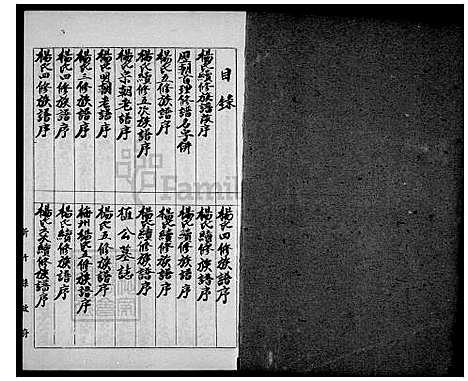 目錄
楊氏續修族譜序
歷朝官理修譜名字併
楊氏五修族譜序
楊氏續修五次族譜序
楊氏宋朝老譜序
楊氏明朝老譜序
楊氏三修族譜序
楊氏四修族譜序
楊氏四修族譜序
楊氏四修族譜序
楊氏續修族譜序
楊氏續修族譜序
楊氏續修族譜序
楊氏續修族譜序
植公墓誌
楊氏五修族譜序
梅州楊氏五修族譜序
楊氏續修族譜序
楊氏六續修族譜序